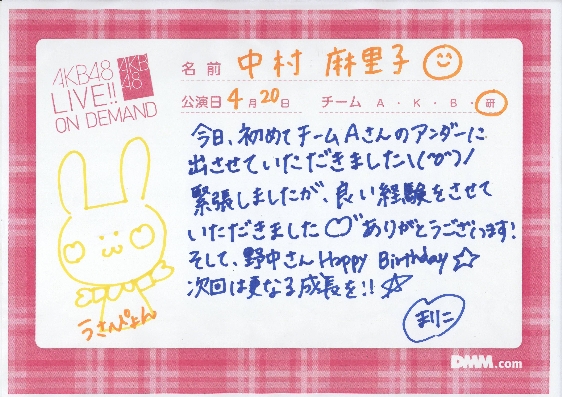 AKB48
LIVE!!
ON DEMAND
AKB
48
名前 中村 麻里子
公演日 4月20日 チーム A・K・B・研
今日、初めてチームAさんのアンダーに
出させていただきました\(^o^)/
緊張しましたが、良い経験をさせて
いただきました♡ありがとうございます!
そして、野中さんHappy Birthday☆
次回は更なる成長を!!☆
まりこ
うさぴょん
DMM.com